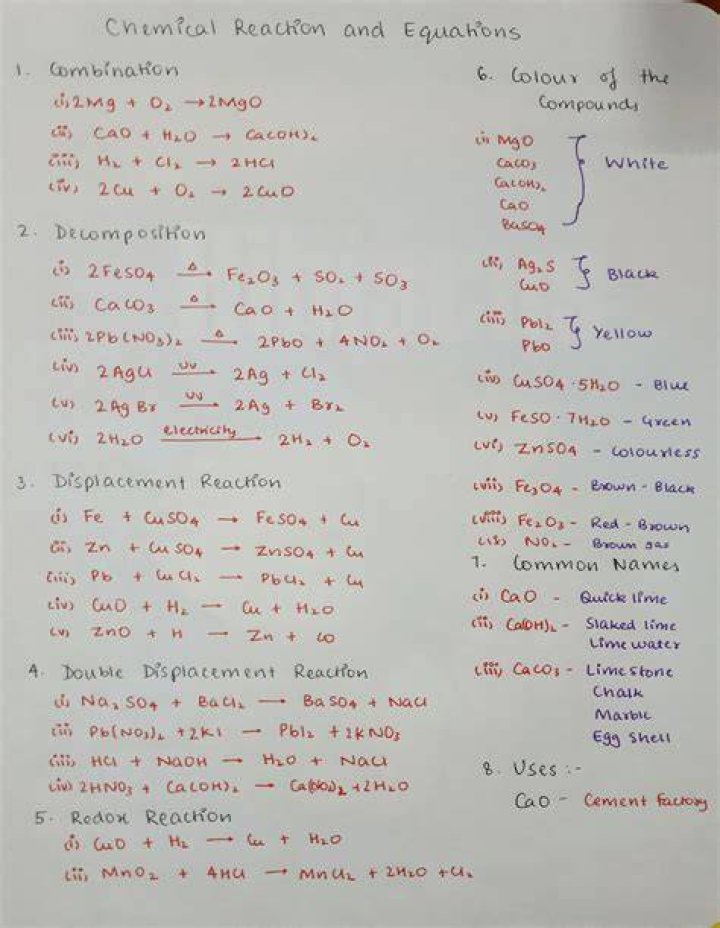 Chemical Reaction and Equations
1. Combination
(i) 2Mg + O₂ → 2MgO
(ii) CaO + H₂O → Ca(OH)₂
(iii) H₂ + Cl₂ → 2HCl
(iv) 2Cu + O₂ → 2CuO
2. Decomposition
(i) 2FeSO₄ —Δ→ Fe₂O₃ + SO₂ + SO₃
(ii) CaCO₃ —Δ→ CaO + H₂O
(iii) 2Pb(NO₃)₂ —Δ→ 2PbO + 4NO₂ + O₂
(iv) 2AgCl —UV→ 2Ag + Cl₂
(v) 2AgBr —UV→ 2Ag + Br₂
(vi) 2H₂O —electricity→ 2H₂ + O₂
3. Displacement Reaction
(i) Fe + CuSO₄ → FeSO₄ + Cu
(ii) Zn + CuSO₄ → ZnSO₄ + Cu
(iii) Pb + CuCl₂ → PbCl₂ + Cu
(iv) CuO + H₂ → Cu + H₂O
(v) ZnO + H → Zn + CO
4. Double Displacement Reaction
(i) Na₂SO₄ + BaCl₂ → BaSO₄ + NaCl
(ii) Pb(NO₃)₂ + 2KI → PbI₂ + 2KNO₃
(iii) HCl + NaOH → H₂O + NaCl
(iv) 2HNO₃ + Ca(OH)₂ → Ca(NO₃)₂ + 2H₂O
5. Redox Reaction
(i) CuO + H₂ → Cu + H₂O
(ii) MnO₂ + 4HCl → MnCl₂ + 2H₂O + Cl₂
6. Colour of the
Compounds
(i) MgO
CaCO₃
Ca(OH)₂ White
CaO
BaSO₄
(ii) Ag₂S
CuO Black
(iii) PbI₂
PbO Yellow
(iv) CuSO₄·5H₂O - Blue
(v) FeSO·7H₂O - Green
(vi) ZnSO₄ - Colourless
(vii) Fe₃O₄ - Brown-Black
(viii) Fe₂O₃ - Red-Brown
(ix) NO₂ - Brown gas
7. Common Names
(i) CaO - Quick lime
(ii) Ca(OH)₂ - Slaked lime
Lime water
(iii) CaCO₃ - Limestone
Chalk
Marble
Egg Shell
8. Uses :-
CaO - Cement factory